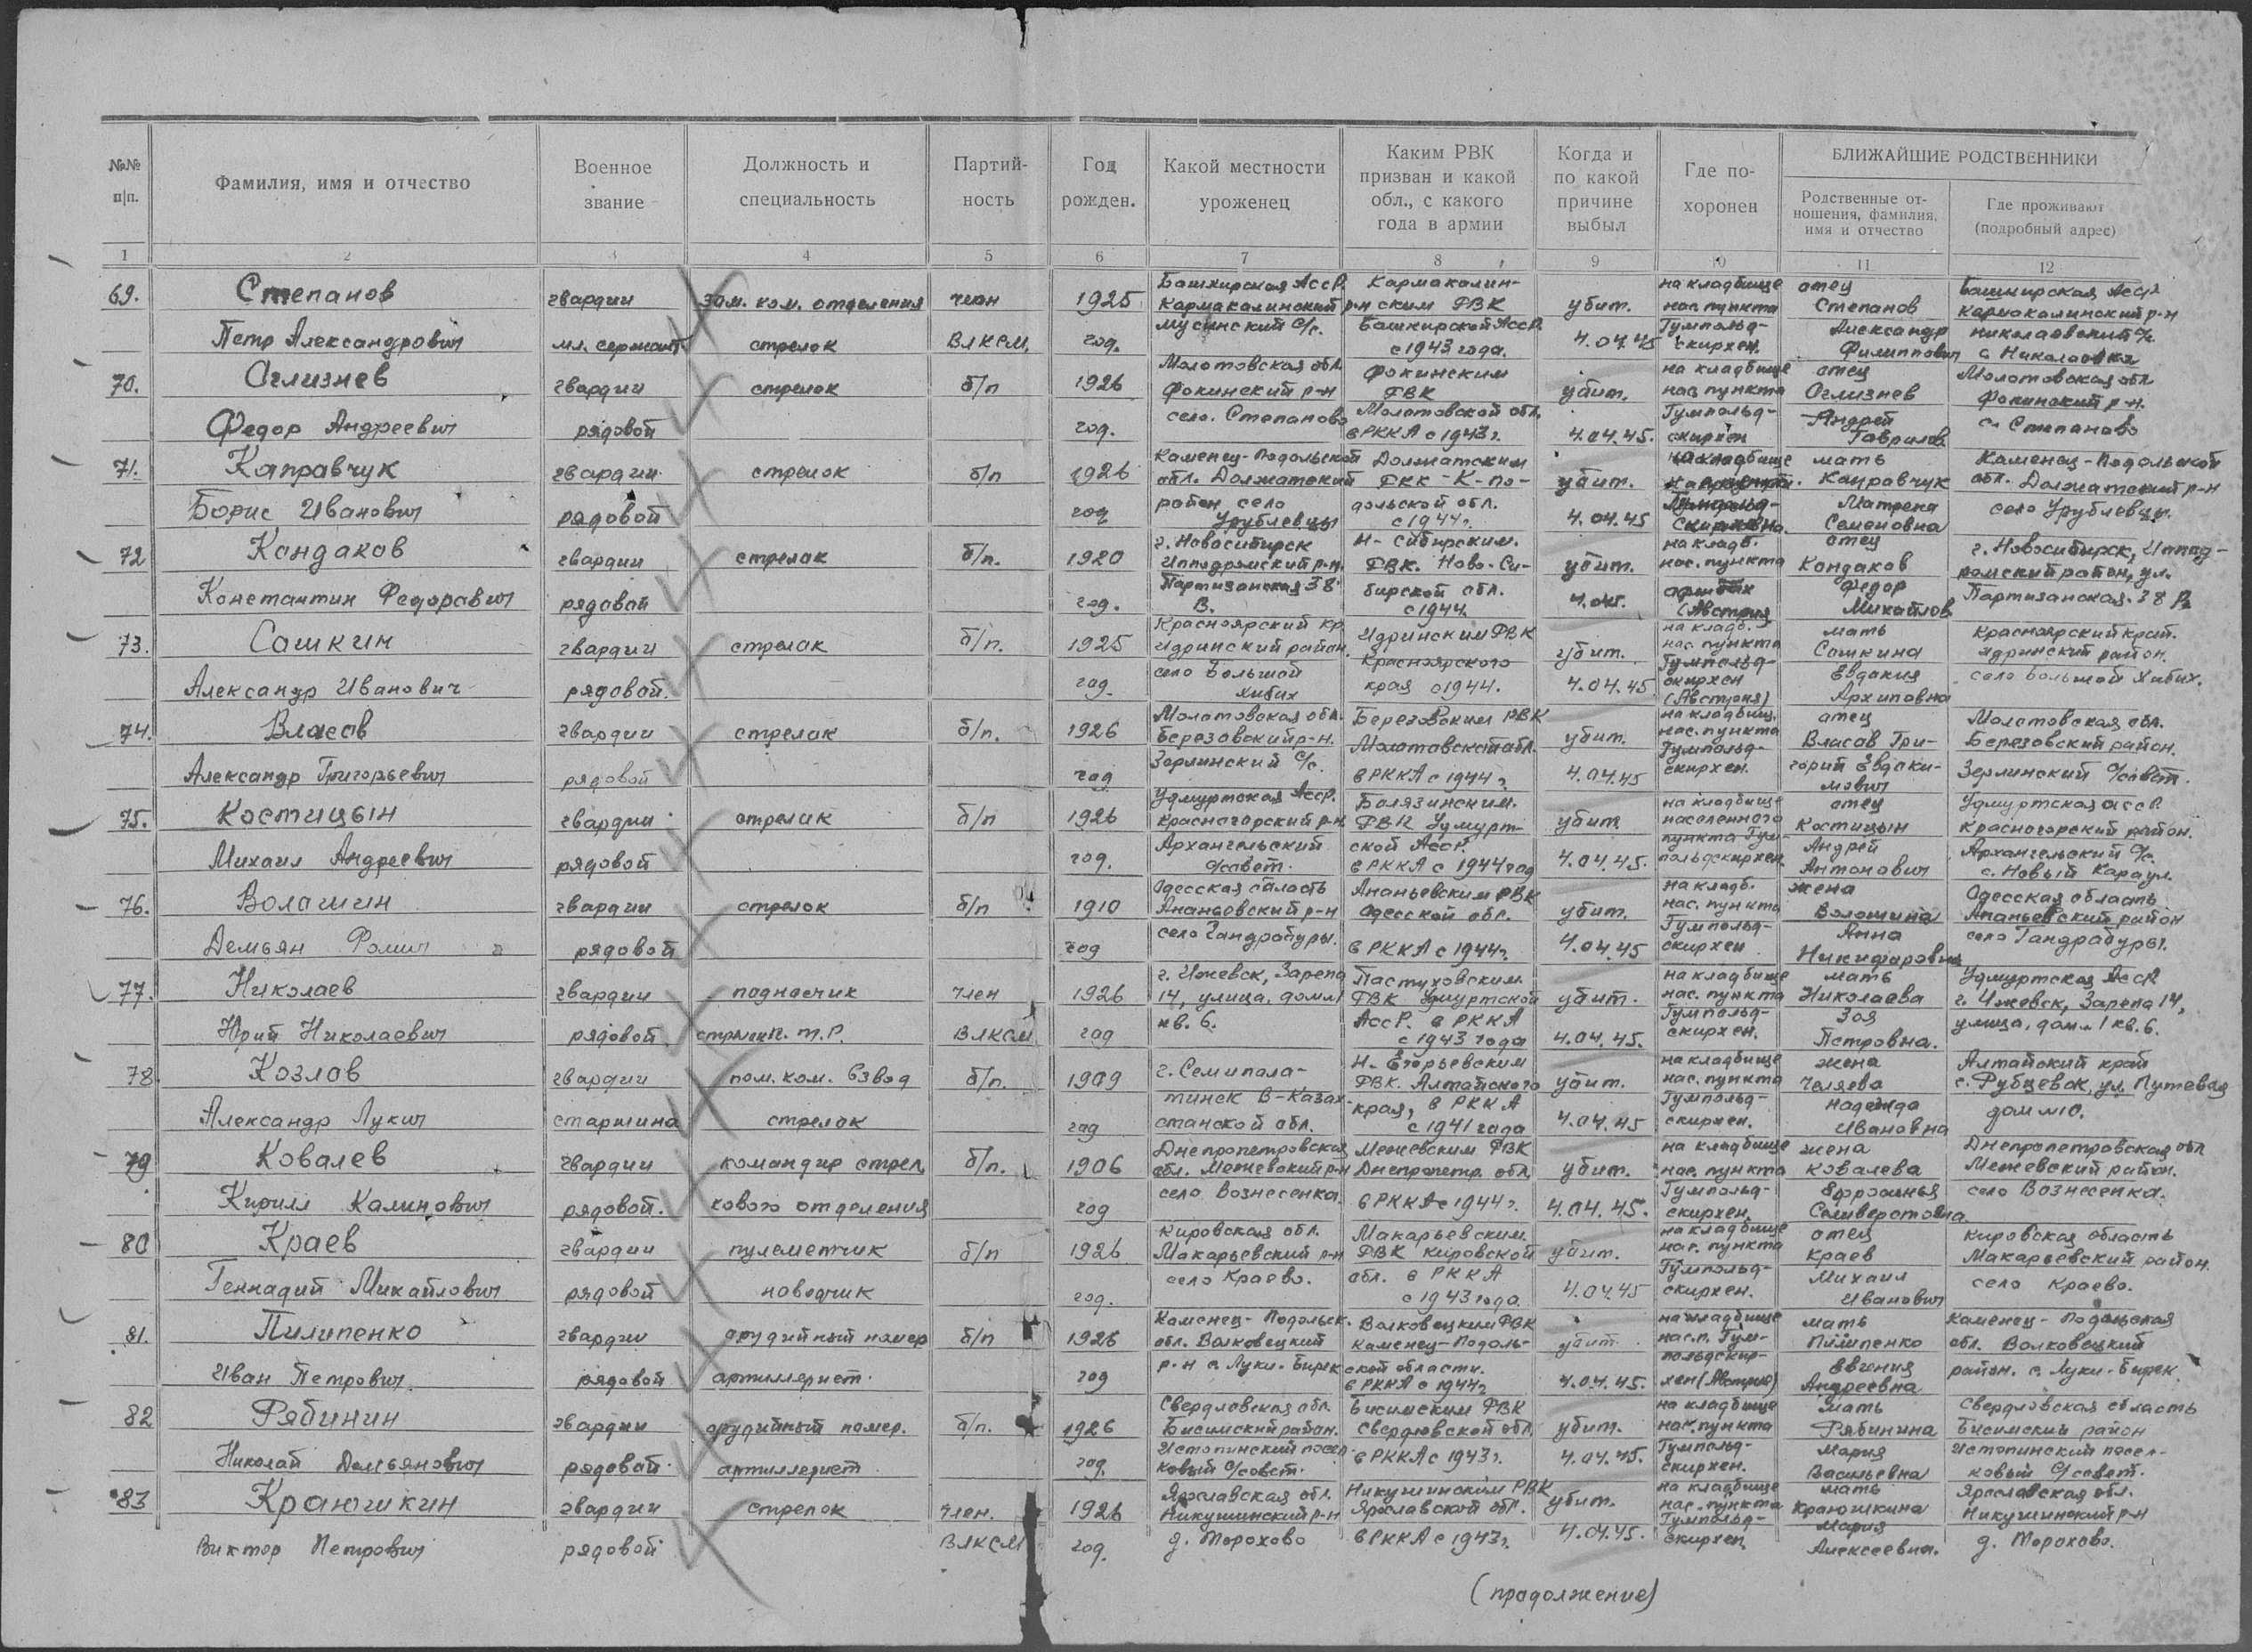 №№ п|п.
Фамилия, имя и отчество
Военное звание
Должность и специальность
Партийность
Год рожден.
Какой местности уроженец
Каким РВК призван и какой обл., с какого года в армии
Когда и по какой причине выбыл
Где похоронен
БЛИЖАЙШИЕ РОДСТВЕННИКИ
Родственные отношения, фамилия, имя и отчество
Где проживают (подробный адрес)
1 2 3 4 5 6 7 8 9 10 11 12
69. Степанов Петр Александрович
гвардии мл. сержант
зам. ком. отделения стрелок
член ВЛКСМ.
1925 год.
Башкирская АссР Кармакалинский р-н Мусинский с/с.
Кармакалинским РВК Башкирской АссР. с 1943 года.
убит. 4.04.45
на кладбище нас. пункта Гумпольдскирхен.
отец Степанов Александр Филиппович
Башкирская АссР Кармакалинский р-н Николаевский с/с. с Николаевка
70. Оглизнев Федор Андреевич
гвардии рядовой
стрелок
б/п
1926 год.
Молотовская обл. Фокинский р-н село. Степаново
Фокинским РВК Молотовской обл. в РККА с 1943 г.
убит. 4.04.45.
на кладбище нас. пункта Гумпольдскирхен
отец Оглизнев Андрей Гаврилов.
Молотовская обл. Фокинский р-н. с. Степаново
71. Каправчук Борис Иванович
гвардии рядовой
стрелок
б/п
1926 год
Каменец-Подольской обл. Должатский район село Урублевцы
Должатским РКК К-Подольской обл. с 1944 г.
убит. 4.04.45
на кладбище
мать Каправчук Матрена Семеновна
Каменец-Подольской обл. Должатский р-н село Урублевцы.
72 Кондаков Константин Федорович
гвардии рядовой
стрелок
б/п.
1920 год.
г. Новосибирск Ипподромский р-н. Партизанская 38 В.
Н-Сибирским. РВК. Ново-Сибирской обл. с 1944
убит.
на кладб. нас. пункта (Австрия
отец Кондаков Федор Михайлов
г. Новосибирск, Ипподромский район, ул. Партизанская. 38
73. Сашкин Александр Иванович
гвардии рядовой.
стрелок
б/п.
1925 год.
Красноярский кр. Идринский район. село Большой Хибик
Идринским РВК Красноярского края с 1944.
убит. 4.04.45
на кладб. нас. пункта Гумпольдскирхен (Австрия)
мать Сашкина Евдакия Архиповна
Красноярский край. Идринский район. село Большой Хибик.
74. Власов Александр Григорьевич
гвардии рядовой
стрелок
б/п.
1926 год
Молотовская обл. Березовский р-н. Зерлинский с/с.
Березовским РВК Молотовской обл. в РККА с 1944 г
убит. 4.04.45
на кладбищ. нас. пункта Гумпольдскирхен.
отец Власов Григорий Евдокимович
Молотовская обл. Березовский район. Зерлинский с/совет.
75. Костицын Михаил Андреевич
гвардии рядовой
стрелок
б/п
1926 год.
Удмуртская АссР. Красногорский р-н Архангельский с/совет.
Балязинским. РВК Удмуртской АссР. в РККА с 1944 год
убит 4.04.45.
на кладбище населенного пункта Гумпольдскирхен.
отец Костицын Андрей Антонович
Удмуртская АссР. Красногорский район. Архангельский с/с. с. Новый Караул.
76. Волошин Демьян Фомич
гвардии рядовой
стрелок
б/п
1910 год
Одесская область Ананьевский р-н село Гандрабуры.
Ананьевским РВК Одесской обл. в РККА с 1944 г.
убит. 4.04.45
на кладб. нас. пункта Гумпольдскирхен
жена Волошина Анна Никифоровна
Одесская область Ананьевский район село Гандрабуры.
77. Николаев Юрий Николаевич
гвардии рядовой
подносчик
член ВЛКСМ
1926 год
г. Ижевск, Зарепа 14, улица, дом 1 кв. 6.
Пастуховским. РВК Удмуртской АссР. в РККА с 1943 года
убит. 4.04.45.
на кладбище нас. пункта Гумпольдскирхен.
мать Николаева Зоя Петровна.
Удмуртская АссР г. Ижевск, Зарепа 14, улица, дом 1 кв. 6.
78. Козлов Александр Лукич
гвардии старшина
пом. ком. взвод стрелок
б/п.
1909 год
г. Семипалатинск В-Казахстанской обл.
Н-Егорьевским РВК. Алтайского края, в РККА с 1941 года
убит. 4.04.45
на кладбище нас. пункта Гумпольдскирхен.
жена Челяева Надежда Ивановна
Алтайский край г. Рубцевск, ул. Путевая дом №10.
79 Ковалев Кирилл Калинович
гвардии рядовой.
командир стрелкового отделения
б/п.
1906 год
Днепропетровская обл. Межевский р-н село Вознесенка.
Межевским РВК Днепропетр. обл. в РККА с 1944 г.
убит. 4.04.45.
на кладбище нас. пункта Гумпольдскирхен.
жена Ковалева Ефросинья Селиверстовна
Днепропетровская обл Межевский район. село Вознесенка.
80 Краев Геннадий Михайлович
гвардии рядовой
пулеметчик наводчик
б/п
1926 год.
Кировская обл. Макарьевский р-н село Краево.
Макарьевским. РВК Кировской обл. в РККА с 1943 года.
убит. 4.04.45
на кладбище нас. пункта Гумпольдскирхен.
отец Краев Михаил Иванович
Кировская область Макарьевский район. село Краево.
81. Пилипенко Иван Петрович
гвардии рядовой
орудийный номер артиллерист.
б/п
1926 год
Каменец-Подольск. обл. Волковецкий р-н с. Луки-Бирек
Волковецким РВК Каменец-Подольской области. в РККА с 1944 г
убит. 4.04.45.
на кладбище нас.п. Гумпольдскирхен (Австрия)
мать Пилипенко Евгения Андреевна
Каменец-Подольская обл. Волковецкий район. с. Луки-Бирек.
82 Рябинин Николай Демьянович
гвардии рядовой
орудийный номер. артиллерист
б/п.
1926 год.
Свердловская обл. Бисимский район. Истопинский поселковый с/совет.
Бисимским РВК Свердловской обл. в РККА с 1943 г.
убит. 4.04.45.
на кладбище нас. пункта Гумпольдскирхен.
мать Рябинина Мария Васильевна
Свердловская область Бисимский район Истопинский поселковый с/совет.
83 Краюшкин Виктор Петрович
гвардии рядовой
стрелок
член. ВЛКСМ
1926 год.
Ярославская обл. Никушинский р-н д. Торохово
Никушинским РВК Ярославской обл. в РККА с 1943 г.
убит. 4.04.45.
на кладбище нас. пункта Гумпольдскирхен.
мать Краюшкина Мария Алексеевна.
Ярославская обл. Никушинский р-н д. Торохово.
(продолжение)